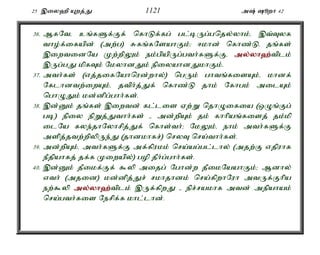 25 இலைஹி யுறத்து 1121 அஷ் ஷூறா 42
36. ஆகவே, உங்களுக்குக் கொடுக்கப் பட்டிருப்பதெல்லாம், இவ்வுலக
வாழ்க்கையின் (அற்ப) சுகங்களேயாகும்; ஈமான் கொண்டு, தங்கள்
இறைவனையே முற்றிலும் நம்பியிருப்பவர்களுக்கு, அல்லாஹ்விடம்
இருப்பது மிகவும் மேலானதும் நிலையானதுமாகும்.
37. அவர்கள் (எத்தகையோரென்றால்) பெரும் பாவங்களையும், மானக்
கேடானவற்றையும், தவிர்த்துக் கொண்டு தாம் கோபம் அடையும்
பொழுதும் மன்னிப்பார்கள்.
38. இன்னும் தங்கள் இறைவன் கட்டளை ஏற்று தொழுகையை (ஒழுங்குப்
படி) நிலை நிறுத்துவார்கள் - அன்றியும் தம் காரியங்களைத் தம்மி
டையே கலந்தாலோசித்துக் கொள்வர்; மேலும், நாம் அவர்களுக்கு
அளித்தவற்றிலிருந்து (தானமாகச்) செலவு செய்வார்கள்.
39. அன்றியும், அவர்களுக்கு அக்கிரமம் செய்யப்பட்டால் (அதற்கு எதிராக
நீதியாகத் தக்க முறையில்) பழி தீர்ப்பார்கள்.
40. இன்னும் தீமைக்குக் கூலி அதைப் போன்ற தீமையேயாகும்; ஆனால்
எவர் (அதனை) மன்னித்துச் சமாதானம் செய்கிறாரோ அவருக்குரிய
நற்கூலி அல்லாஹ்விடம் இருக்கிறது - நிச்சயமாக அவன் அநியாயம்
செய்பவர்களை நேசிக்க மாட்டான்.